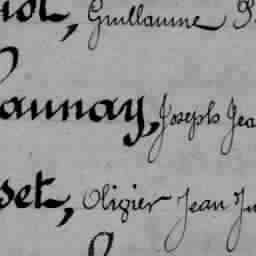 Guillaume
aunay, Joseph Jea
set, Olivier Jean